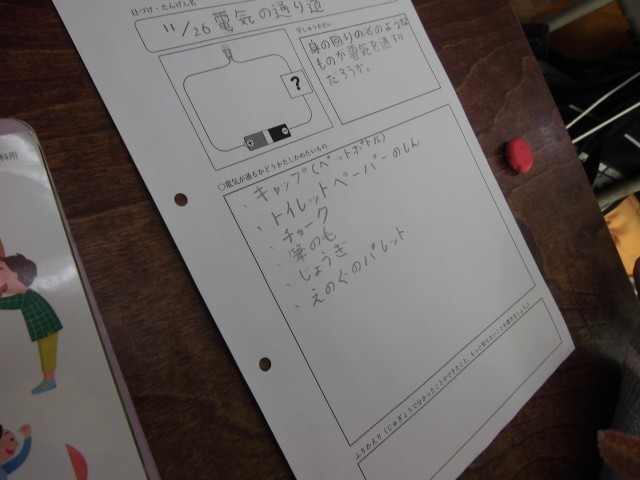 ひづけ・たんげん名
11/26 電気の通り道
?
+
-
身の回りのどのような
ものが電気を通すの
だろうか。
○電気が通るかどうかたしかめたいもの
・キャップ(ペットボトル)
・トイレットペーパーのしん
・チョーク
・筆のも
・じょうぎ
・えのぐのパレット
科用